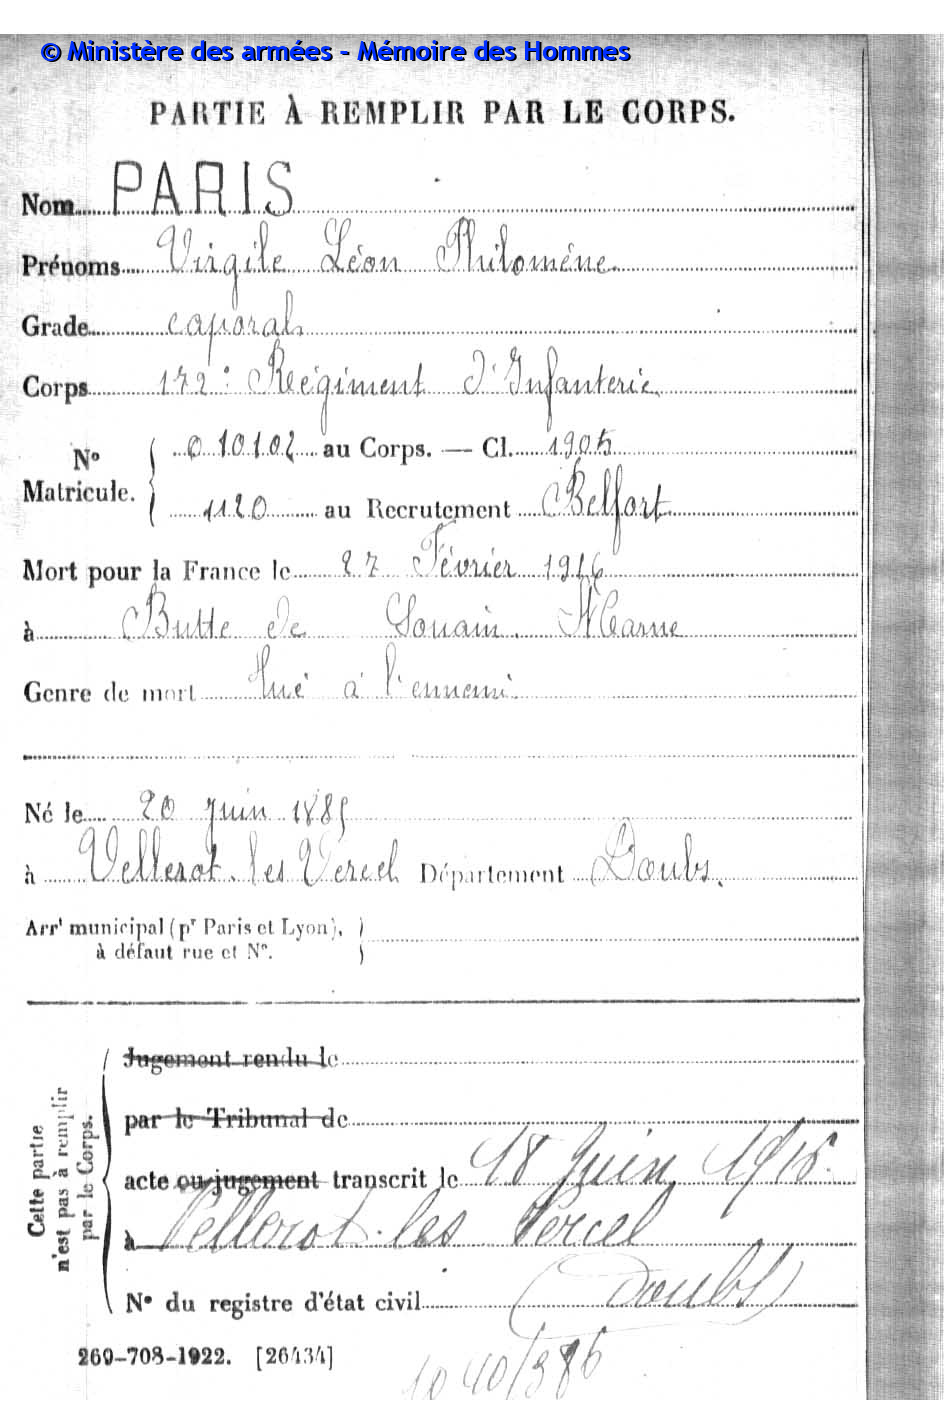 © Ministère des armées - Mémoire des Hommes
PARTIE À REMPLIR PAR LE CORPS.
Nom PARIS
Prénoms Virgile Léon Philomène
Grade caporal
Corps 172e Régiment d'Infanterie
No Matricule. 0 10102 au Corps. — Cl. 1905
1120 au Recrutement Belfort
Mort pour la France le 27 Février 1916
à Butte de Souain Marne
Genre de mort tué à l'ennemi
Né le 20 Juin 1885
à Vellerot-les Vercel Département Doubs.
Arrt municipal (pr Paris et Lyon),
à défaut rue et No.
Cette partie n'est pas à remplir par le Corps.
Jugement rendu le
par le Tribunal de
acte ou jugement transcrit le 18 Juin 1916.
à Vellerot-les Vercel
No du registre d'état civil (Doubs)
269-708-1922. [26434]
1040/386